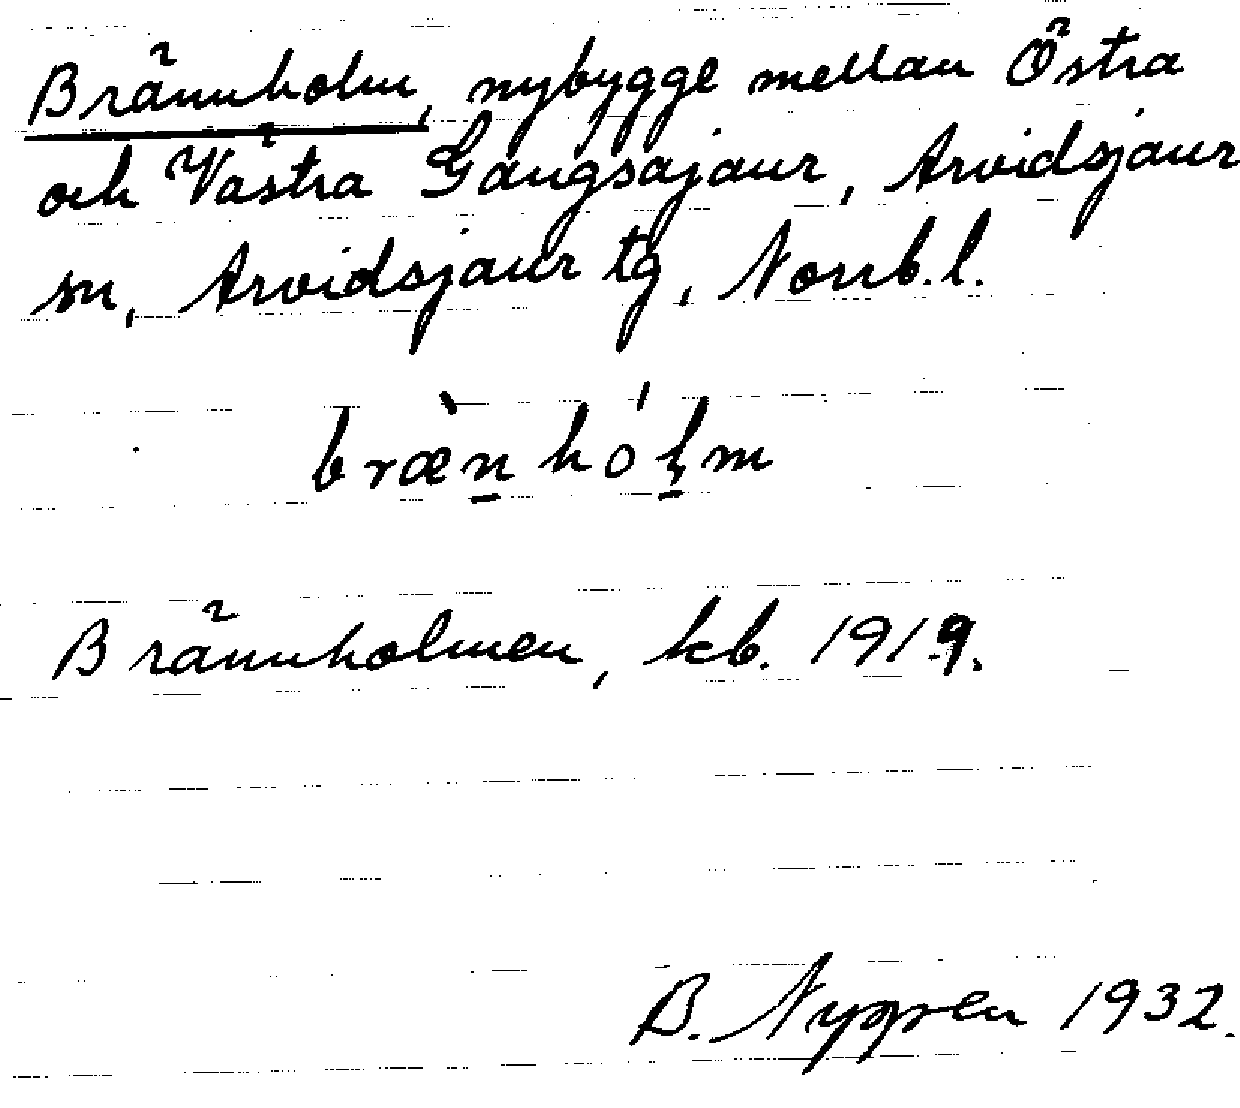 Brännholm, nybygge mellan Östra
och Västra Gaugsajaur, Arvidsjaur
sn, Arvidsjaur tg, Norrb. l.
bræ̀n̲hól̲m
Brännholmen, kb. 1919.
B. Nygren 1932.